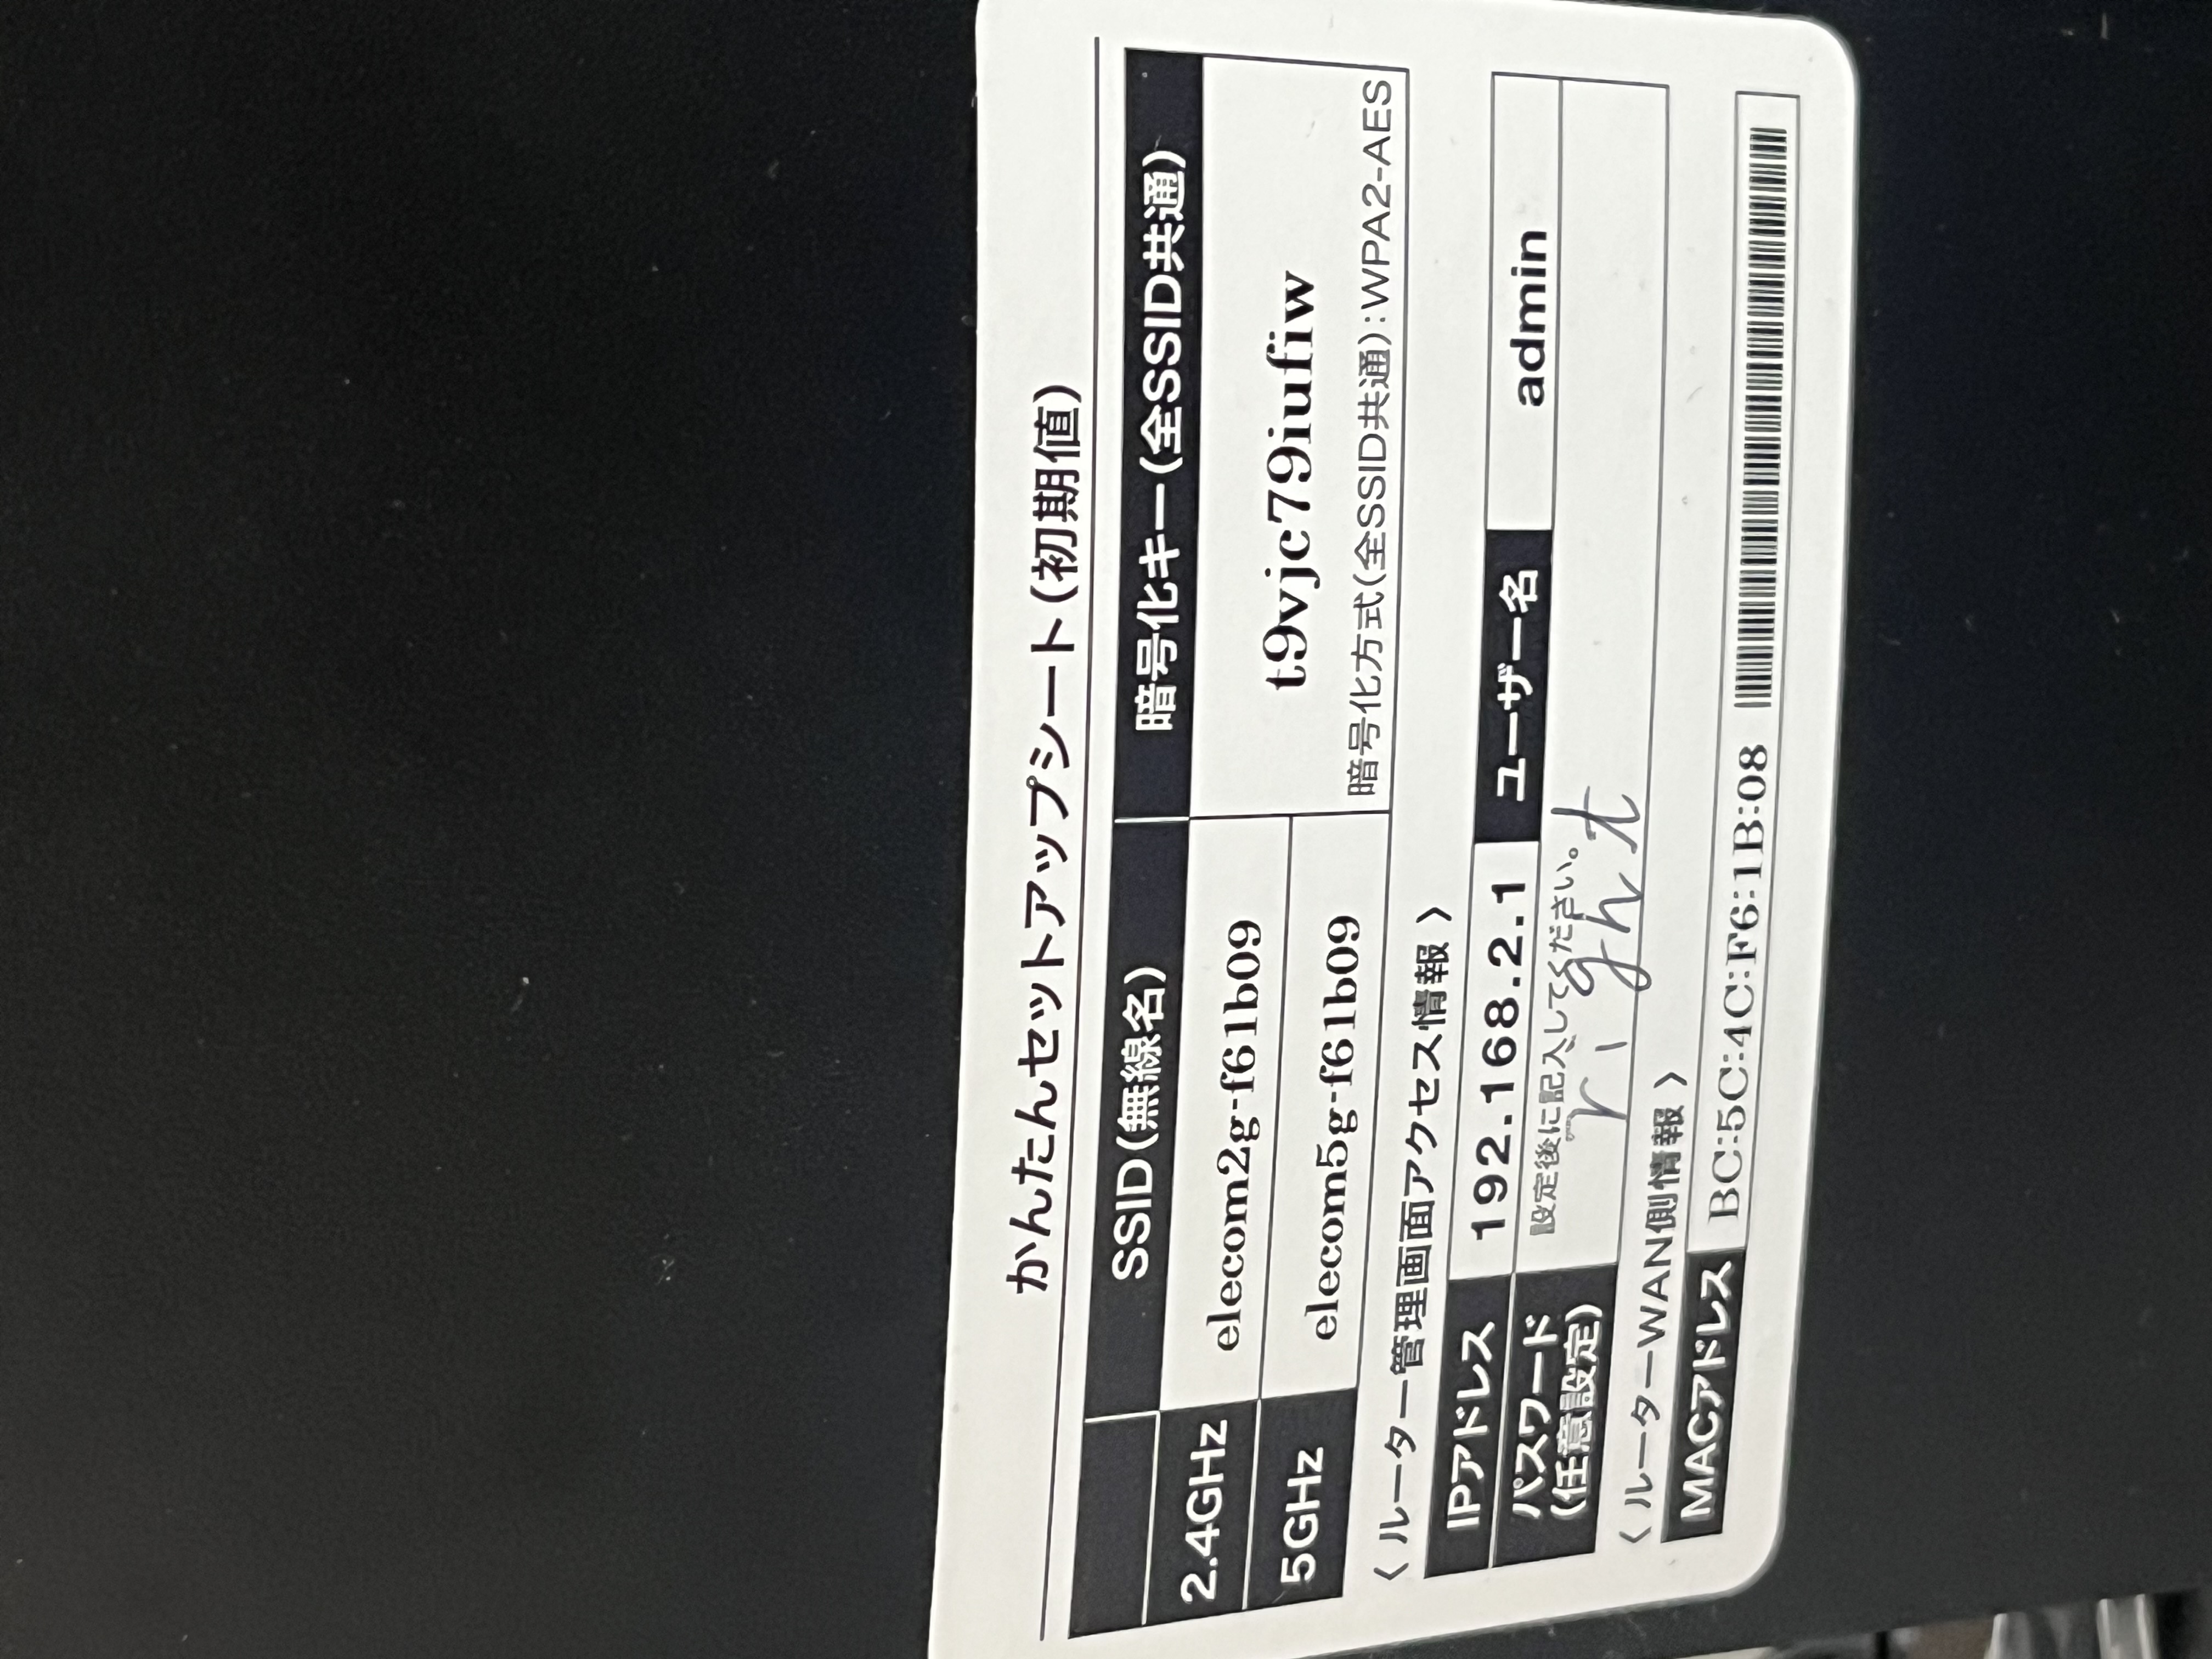 かんたんセットアップシート(初期値)
SSID(無線名) 暗号化キー(全SSID共通)
2.4GHz elecom2g-f61b09
t9vjc79iufiw
5GHz elecom5g-f61b09
暗号化方式(全SSID共通):WPA2-AES
〈 ルーター管理画面アクセス情報 〉
IPアドレス 192.168.2.1 ユーザー名 admin
パスワード
(任意設定)
設定後に記入してください。
right
〈 ルーターWAN側情報 〉
MACアドレス BC:5C:4C:F6:1B:08